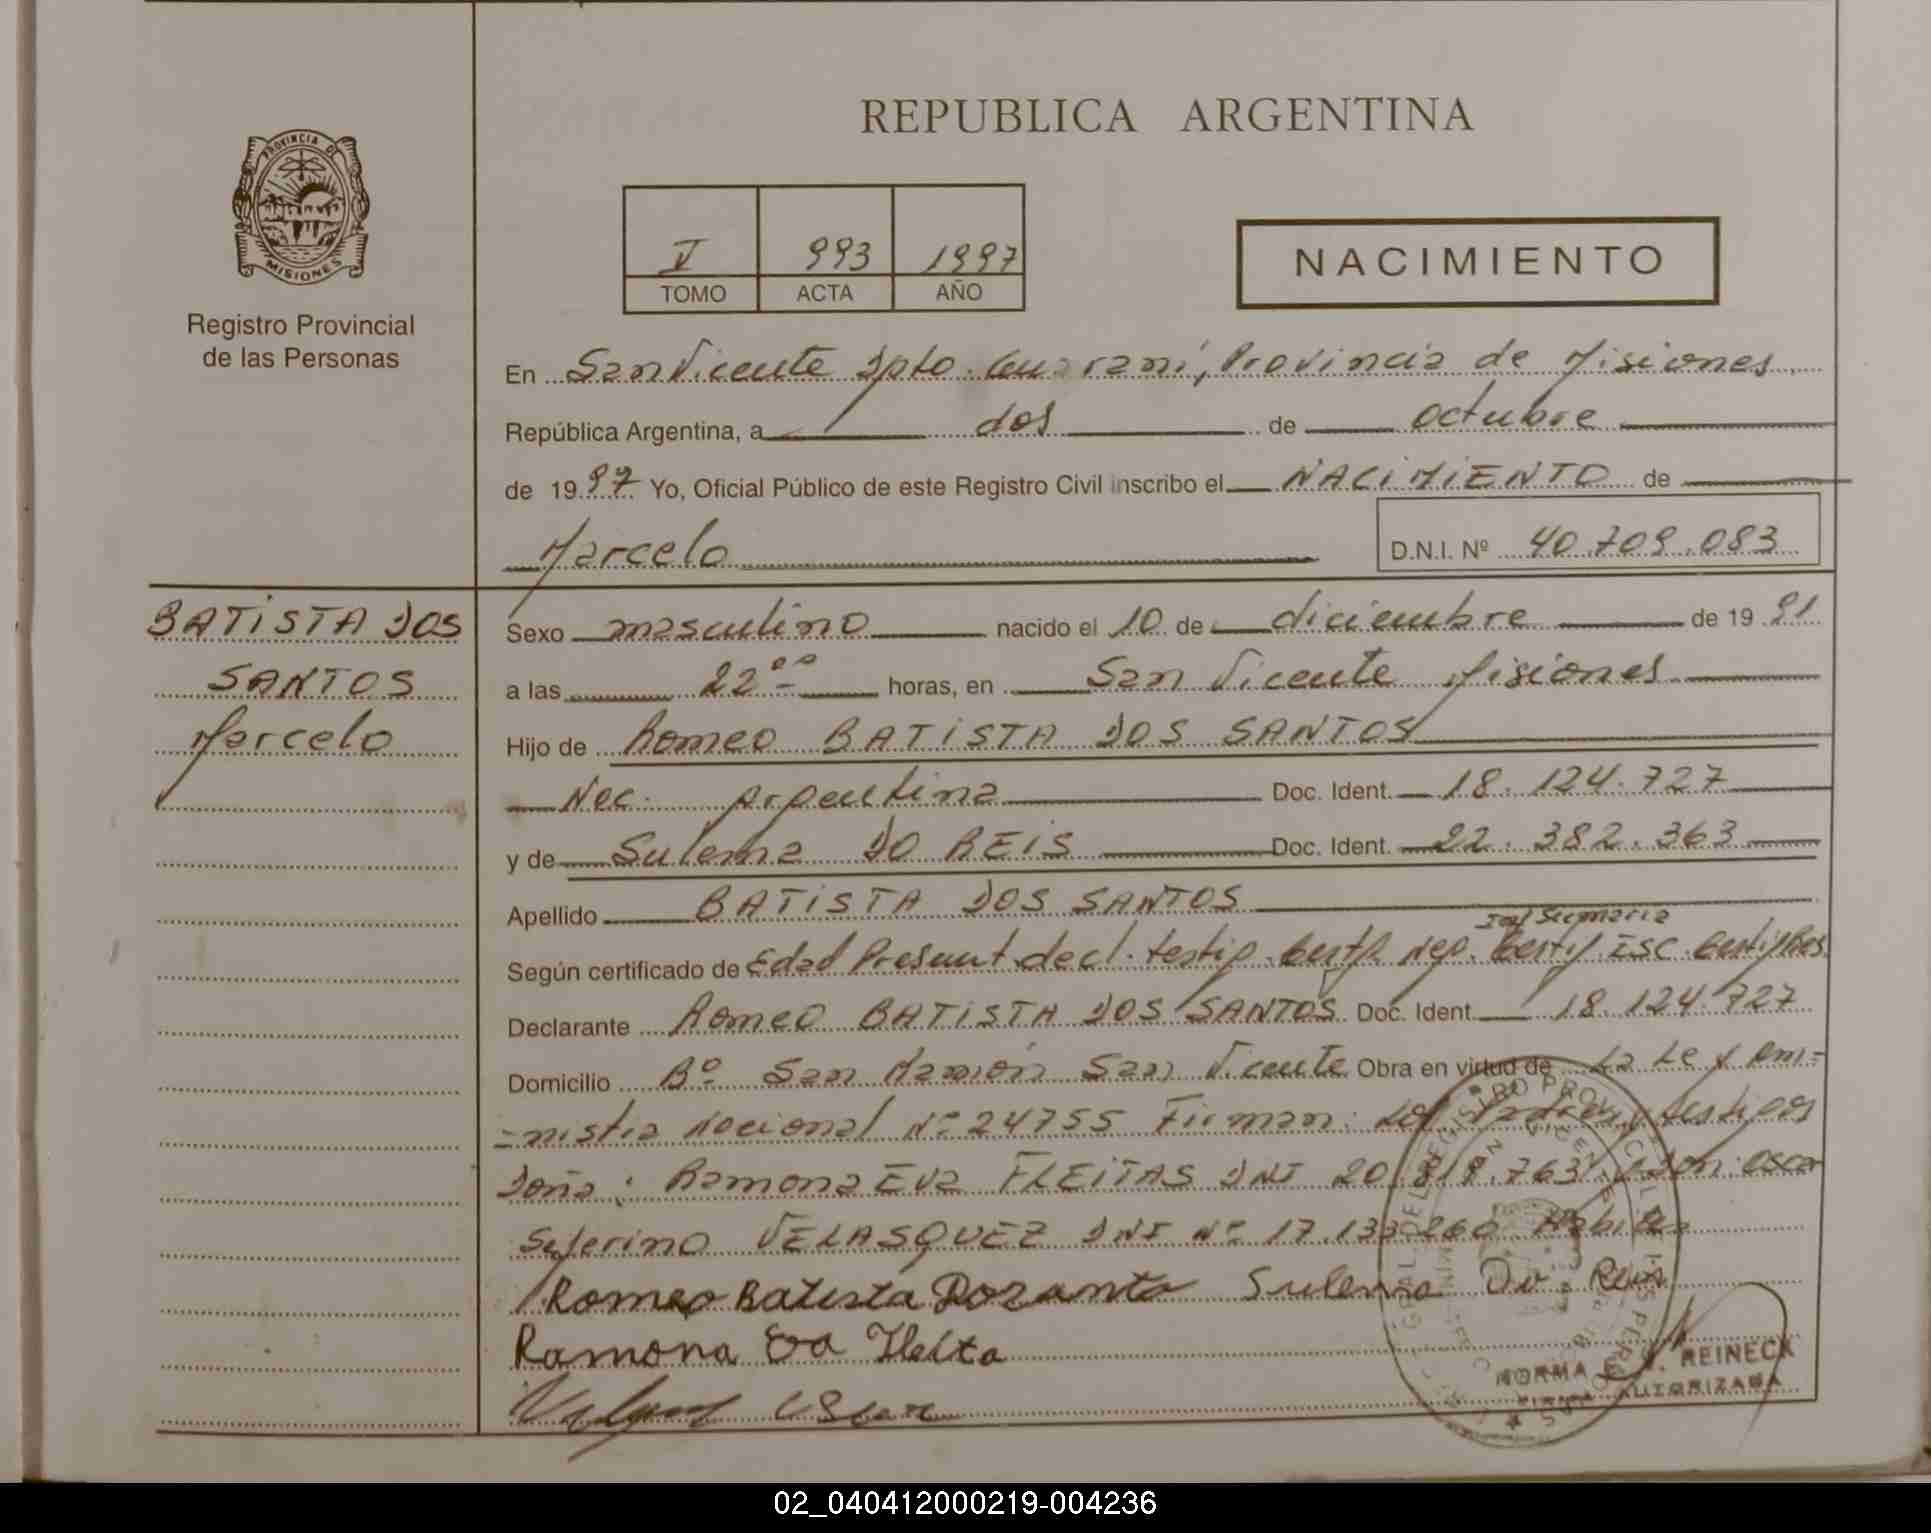 PROVINCIA DE
MISIONES
Registro Provincial
de las Personas
REPUBLICA ARGENTINA
V 993 1997
TOMO ACTA AÑO
NACIMIENTO
En San Vicente Dpto. Guaraní, Provincia de Misiones
República Argentina, a dos de octubre
de 1997 Yo, Oficial Público de este Registro Civil inscribo el NACIMIENTO de
Marcelo D.N.I. Nº 40.709.083
BATISTA DOS
SANTOS
Marcelo
Sexo masculino nacido el 10 de diciembre de 1991
a las 22ºº horas, en San Vicente Misiones
Hijo de Romeo BATISTA DOS SANTOS
Nac. Argentina Doc. Ident. 18.124.727
y de Sulema DO REIS Doc. Ident. 22.382.363
Apellido BATISTA DOS SANTOS
Inf Sumaria
Según certificado de Edad Presunt. decl. testig. Certf. Neg. Certif. ISC. Certif Res.
Declarante Romeo BATISTA DOS SANTOS Doc. Ident. 18.124.727
Domicilio Bº San Ramón San Vicente Obra en virtud de La Ley Am-
-nistia Nacional Nº 24755 Firman: Los Padres y testigos
Doña: Ramona Eva FLEITAS DNI 20.819.763 y don: Oscar
Seferino VELASQUEZ DNI Nº 17.133.260 Habiles
Romeo Batista Dozanto Sulema Do Reis
Ramona Eva Fleita
Oscar
NORMA REINECK
FIRMA AUTORIZADA
02_040412000219-004236